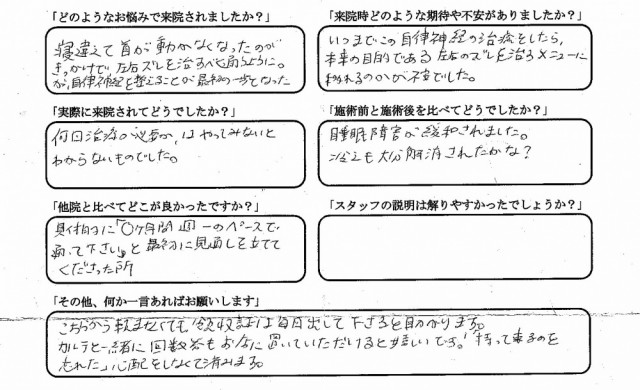 「どのようなお悩みで来院されましたか？」
寝違えて首が動かなくなったのが
きっかけで左右ズレを治すべと伺うように。
が、自律神経を整えることが最初の一歩となった
「来院時どのような期待や不安がありましたか？」
いつまでこの自律神経の治療をしたら、
本来の目的である左右のズレを治るメニューに
わるのかが不安でした。
「実際に来院されてどうでしたか？」
何回治療が必要か、はやってみないと
わからないものでした。
「施術前と施術後を比べてどうでしたか？」
睡眠障害が緩和されました。
冷えも大分解消されたかな？
「他院と比べてどこが良かったですか？」
具体的に「〇ヶ月間週一のペースで
通って下さい」と最初に見通しを立てて
くださった所
「スタッフの説明は解りやすかったでしょうか？」
「その他、何か一言あればお願いします」
こちらから頼まなくても、領収証は毎回出して下さると助かります。
カルテと一緒に回数券もお店に置いていただけると嬉しいです。「持って来るのを
忘れた」心配をしなくて済みます。